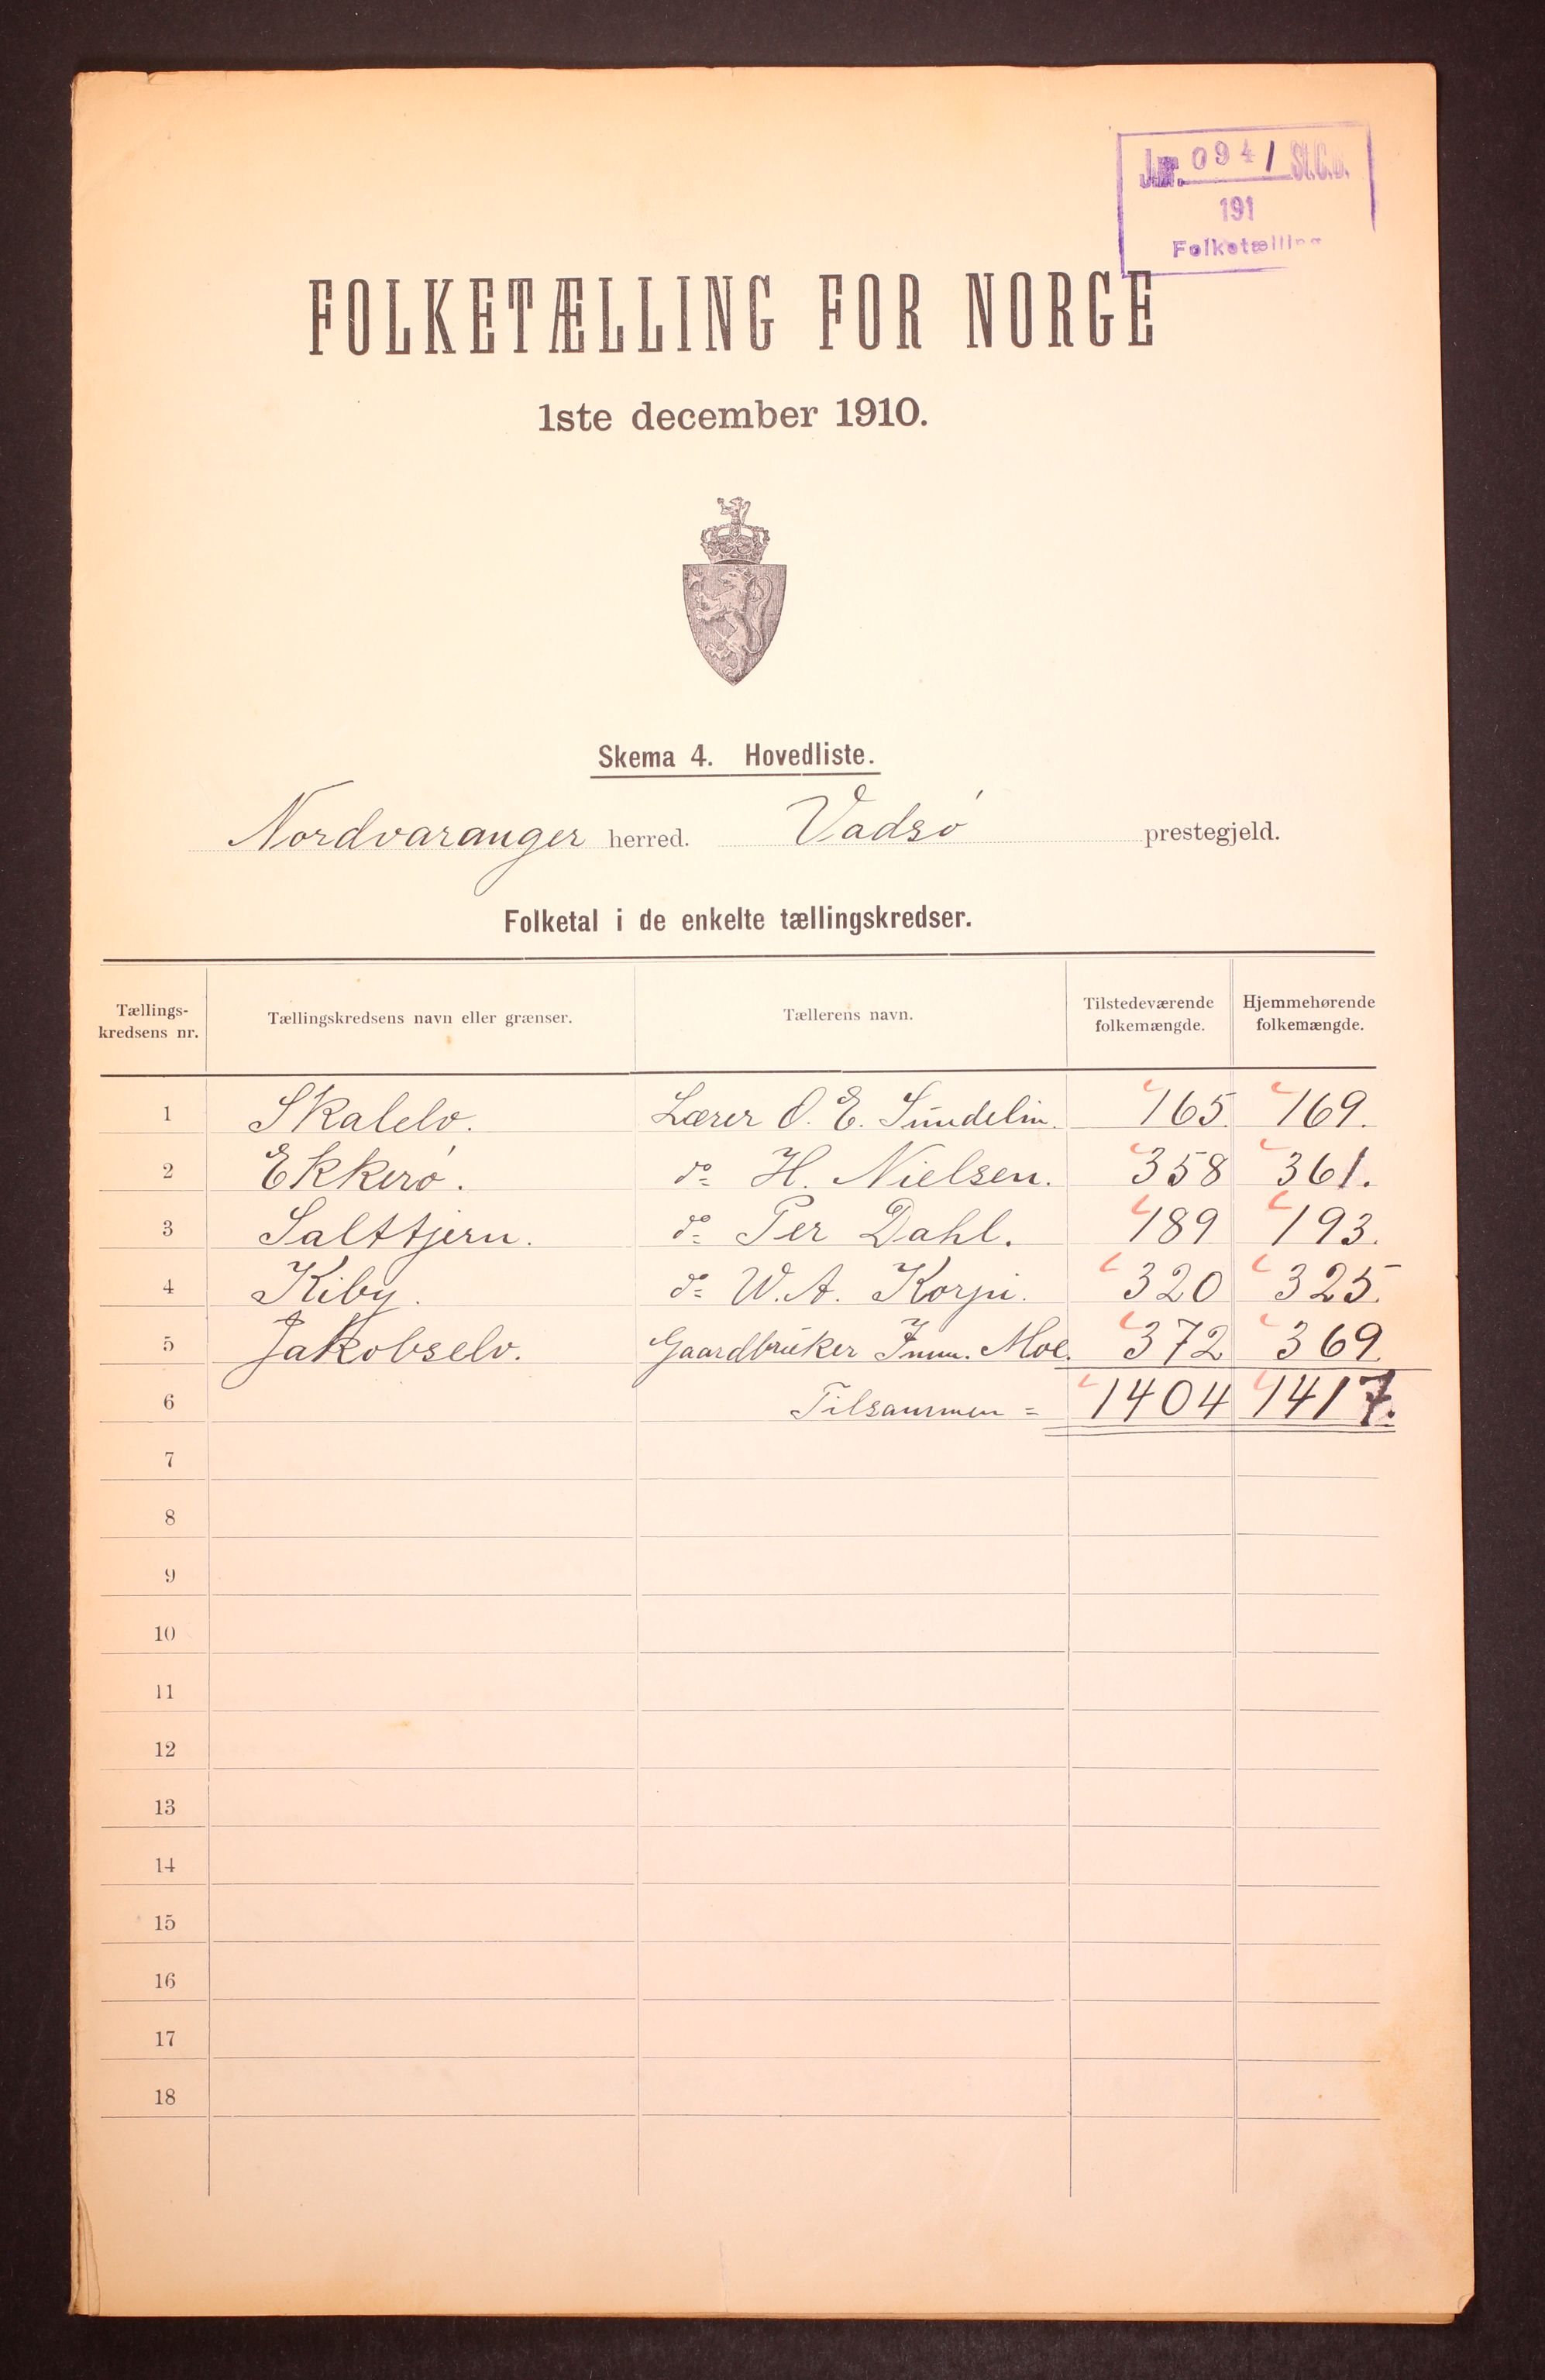 J.nr. 0941 St.C.b.
191
Folketælling
FOLKETÆLLING FOR NORGE
1ste december 1910.
Skema 4. Hovedliste.
Nordvaranger herred. Vadsø prestegjeld.
Folketal i de enkelte tællingskredser.
Tællings-kredsens nr. Tællingskredsens navn eller grænser. Tællerens navn. Tilstedeværende folkemængde. Hjemmehørende folkemængde.
1 Skalelv. Lærer O. E. Sundelin. 165. 169.
2 Ekkerø. do H. Nielsen. 358 361.
3 Salttjern. do Per Dahl. 189 193.
4 Kiby. do W. A. Korpi. 320 325.
5 Jakobselv. Gaardbruker Imm. Moe. 372 369.
6 Tilsammen = 1404 1417.
7
8
9
10
11
12
13
14
15
16
17
18